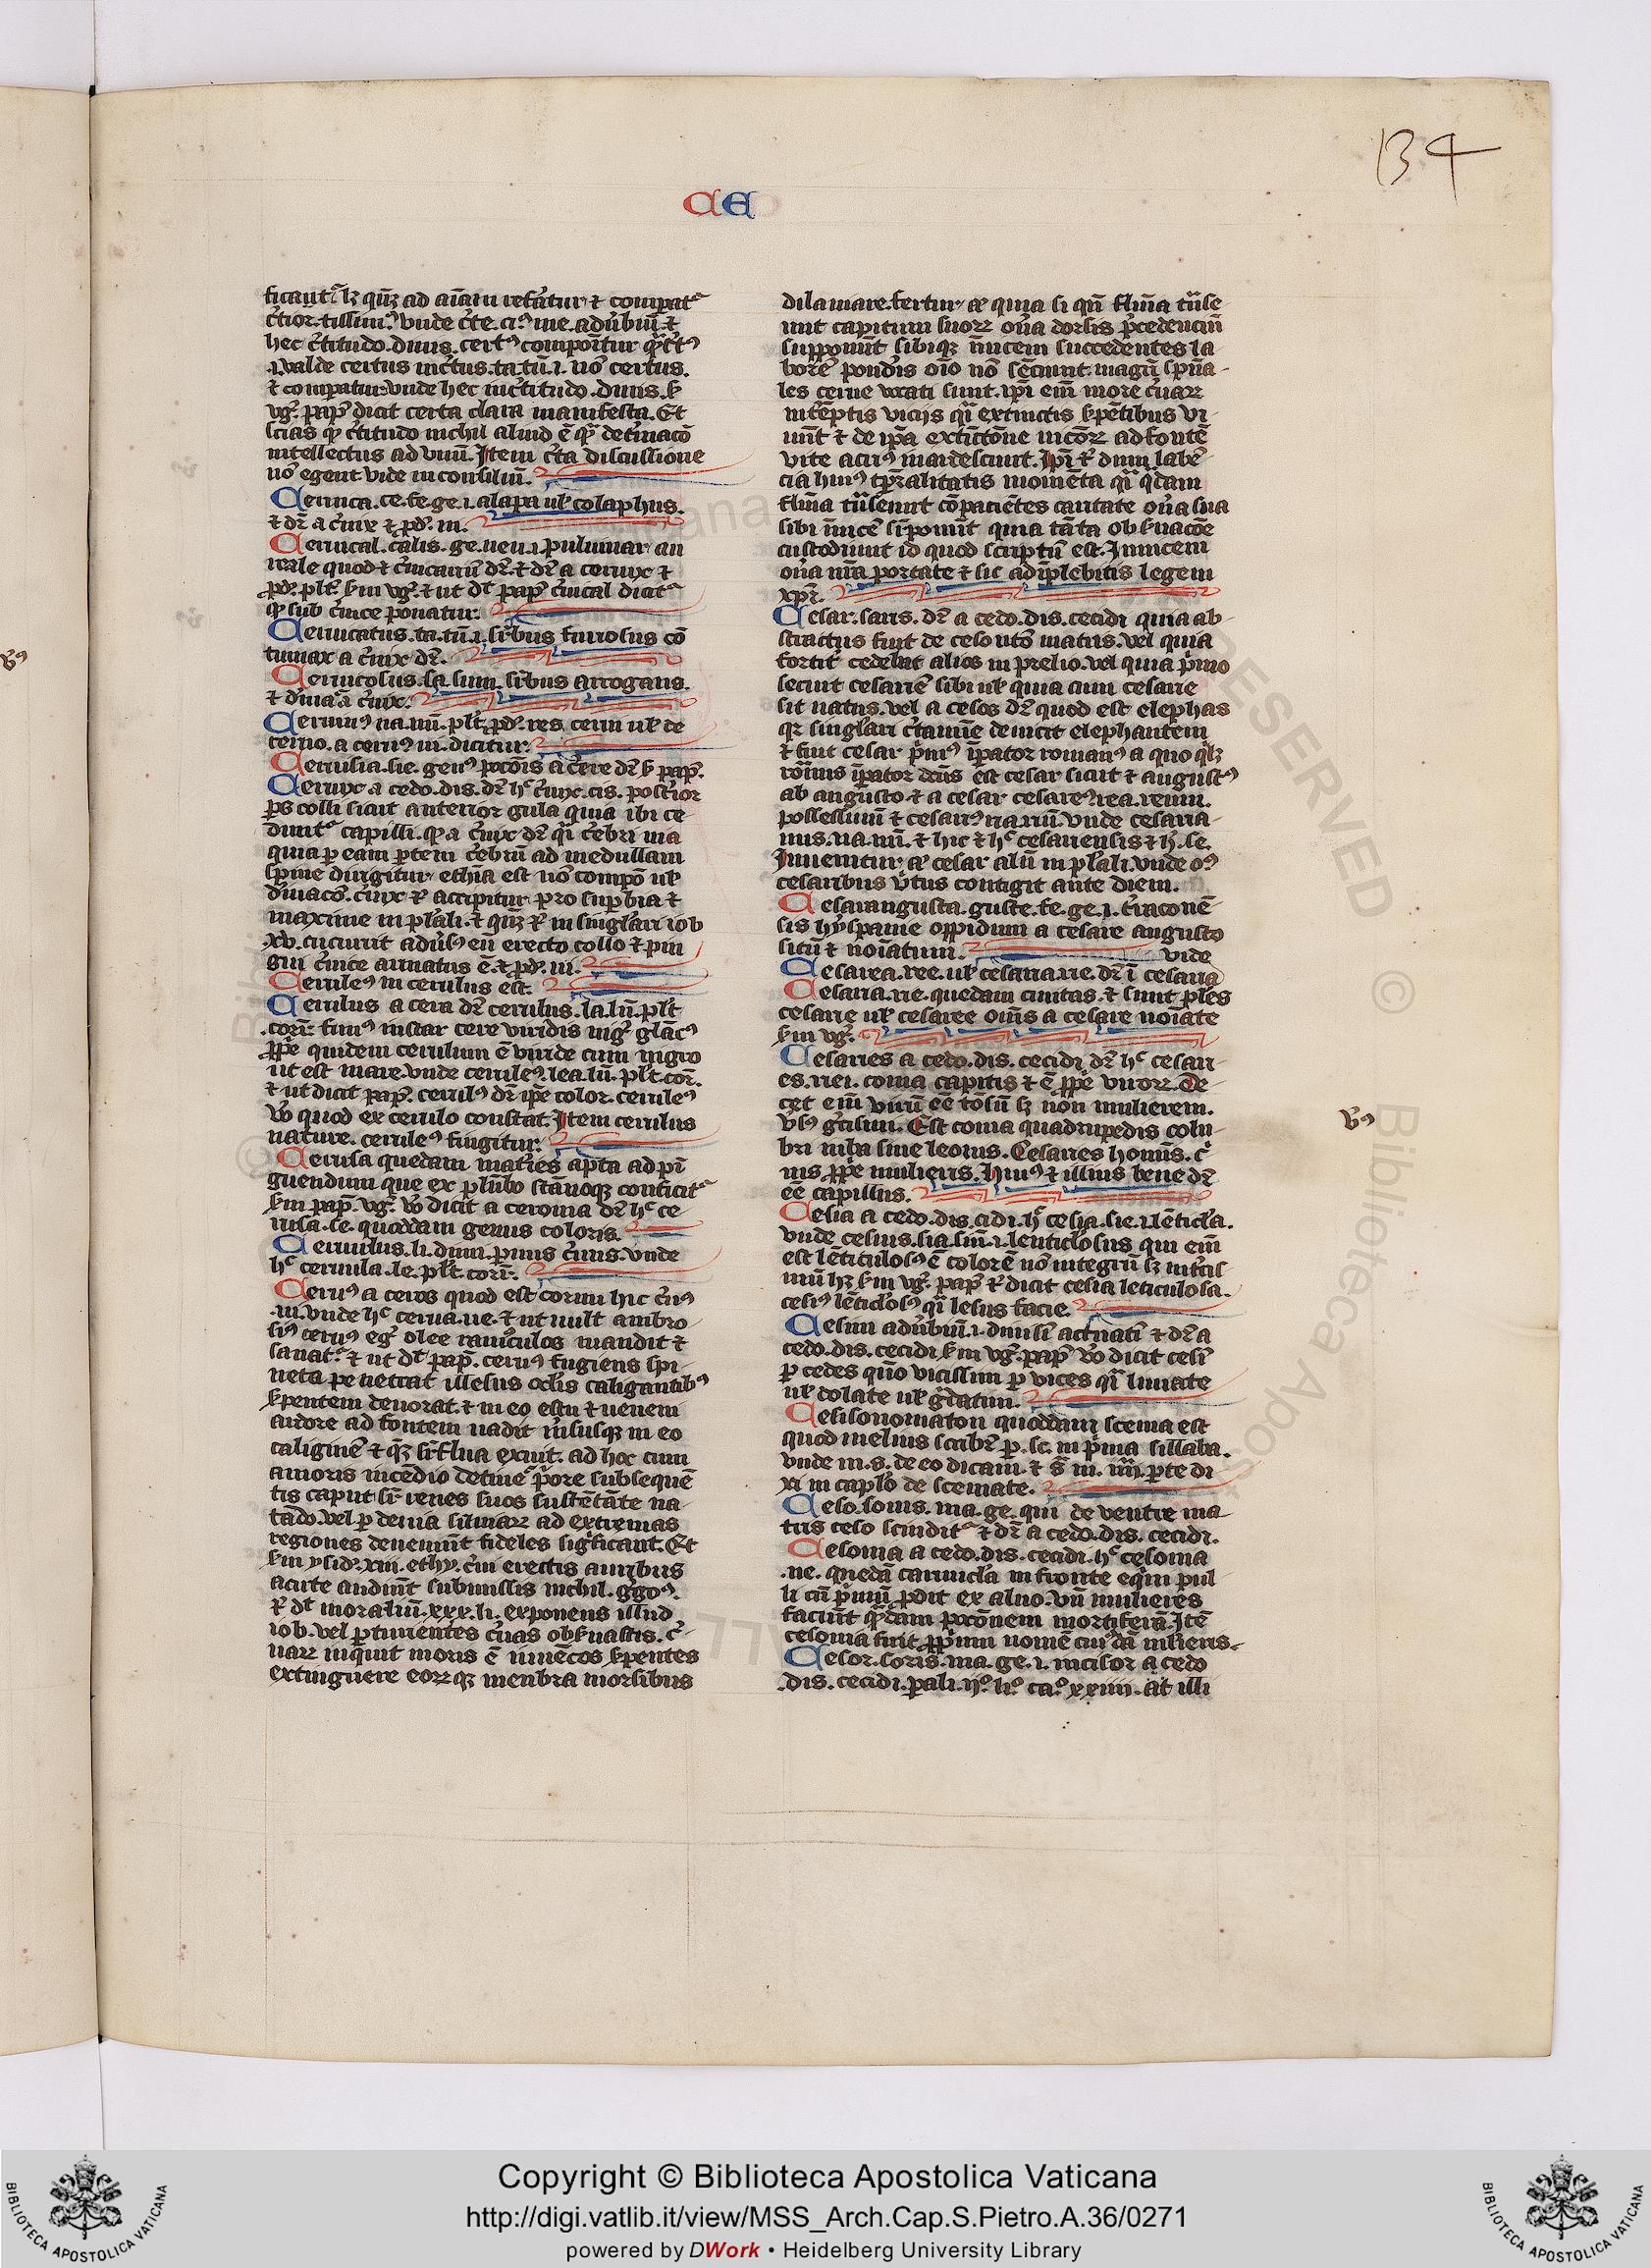 134
CE
ficant᷑ lꝫ qñꝫ ad aīam refat̉ur ⁊ compat᷑
c̉tior. tissimꝰ. vnde c̉te. ciꝰ. me. adūbiū. ⁊
hec c̉titudo. dinis. certꝰ componitur
.i. valde certus incertus. ta. tū. i. nō certus.
⁊ compatur. vnde hec inc̉titudo. dinis. ẜ
vgͦ. papͣ dicit certa clara manifesta. Et
scias ꝙ c̉titudo nichil aliud ē qͣ̄ det̉minacō
intellectus ad vnū. Item c̉ta discussione
nō egent vide in consiliū.
Ceruica. ce. fe. ge. i. alapa ul̓ colaphus.
⁊ dr̄ a c̉uix ⁊ pdͦ. in.
Ceruical. calis. ge. neu. i. puluinar au
reale quod ⁊ c̉uicariū dr̄. ⁊ dr̄ a ceruix ⁊
pdͦ. plt̄. ẜm vgͦ. ⁊ ut dt̄ papͣ c̉uical dicit᷑
ꝙ sub c̉uice ponatur.
Ceruicatus. ta. tū. i. suꝑbus furiosus cō
tumax a c̉uix dr̄.
Ceruicosus. sa. sum. suꝑbus arrogans.
⁊ d̉iuat̉ a c̉uix.
Ceruinꝰ na. nū. plt̄. pdͦ. res cerui ul̓ de
ceruo. a ceruꝰ ui. dicitur.
Ceruisia. sie. genꝰ potōis a c̉ere dr̄ ẜ papͣ.
Ceruix a cedo. dis. dr̄ hͨ c̉uix. cis. post̉ior
ps colli sicut anterior gula quia ibi ce
dunt᷑ capilli. ꝙ a c̉uix dr̄ qͣi c̉ebri uia
quia ꝑ eam ꝑtem c̉ebrū ad medullam
spine dirigitur. ethia est nō compō ul̓
d̉iuacō. c̉uix ⁊ accipitur pro suꝑbia ⁊
maxime in pl̓ali. ⁊ qñꝫ ⁊ in singl̓ari iob
.xv. cucurrit adūsꝰ eū erecto collo ⁊ pin
gui c̉uice armatus ē. ⁊ pdͦ. ui.
Ceruleꝰ in cerulus est.
Cerulus a cera dr̄ cerulus. la. lū. plt̄
.cor̄. fuluꝰ instar cere viridis nigͬ glaucꝰ
ꝓpͥe quidem cerulum ē viride cum nigro
ut est mare. vnde ceruleꝰ. lea. lū. plt̄. cor̄.
⁊ ut dicit papͣ. cerulꝰ dr̄ ip̄e color. ceruleꝰ
v̊o quod ex cerulo constat. Item cerulus
nature. ceruleꝰ fingitur.
Cerusa quedam mat̉ies apta ad pī
guendum que ex plūbo stannoqꝫ conficit᷑
ẜm papͣ. vgͦ. v̊o dicit a ceroma dr̄ hͨ ce
rusa. se. quoddam genus coloris.
Ceruulus. li. dim. ꝑuus c̉uus. vnde
hͨ ceruula. le. plt̄. cor̄.
Ceruꝰ a ceros quod est cornu hic c̉uꝰ
.ui. vnde hͨ cerua. ue. ⁊ ut uult ambro
siꝰ ceruꝰ egͬ olee ramusculos mandit ⁊
sanat᷑. ⁊ ut dt̄ papͣ. ceruꝰ fugiens spi
neta penetrat illesus oculis caligantibꝰ
ẜpentem deuorat. ⁊ in eo estu ⁊ ueneni
ardore ad fontem uadit
caliginē ⁊ exuit. ad hoc cum
amoris incendio
tis caput suꝑ renes suos sustētāte na
tādo. vel ꝑ deuia siluaꝝ ad extremas
regiones deueniūt fideles sigͥficant. Et
ẜm ysidͦ. xiii. ethy. c̉ui erectis auribus
acute audiūt submissis nichil. gͦgoꝰ.
⁊ dt̄ moraliū. xxx. li. exponens illud
iob. vel ꝑturientes c̉uas obẜuastis. c̉
uaꝝ inquit moris ē inuētos ẜpentes
extinguere eoꝝqꝫ menbra morsibus
dilaniare. fertur ⁊ quia si qñ flūia tͣnse
unt capitum suoꝝ on̄a dorsis p̄cedenciū
supponūt sibiqꝫ inuicem succedentes la
borē pond̉is oīo nō sēciunt. magͥ spūa
les cerue vocati sunt. ip̄i eniꝫ more c̉uaꝝ
int̉eptis vicijs qͣi extinctis ẜpētibus vi
uūt ⁊ de ip̄a extinctōne adfontē
vite maidescunt. Ip̄i ⁊ dum labē
cia huiꝰ tp̄ralitatis momēta qͣi qͥdam
flūia tͣnseunt cōpaciētes caritate on̄a sua
sibi inuicē suꝑponūt quia tāta obẜuacōe
custodiunt id quod scriptū est. Inuicem
on̄a nr̄a portate ⁊ sic adīplebitis legem
xp̄i.
Cesar. saris. dr̄ a cedo. dis. cecidi quia ab
stractus fuit de ceso utō matris. vel quia
fortit̉ cedebat alios in prelio. vel quia p̄mo
seciut cesariē sibi ul̓ quia cum cesarie
sit natus. vel a cesos dr̄ quod est elephas
qꝛ singl̓ari c̉tamīe deuicit elephantem
⁊ fuit cesar p̄mꝰ īpator romanꝰ a quo qͥlꝫ
īpator dcūs est cesar sicut ⁊ augustꝰ
ab augusto ⁊ a cesar cesareꝰ rea. reum.
possessiuū ⁊ cesarꝰ na. nū. vnde cesaria
nus. na. nū. ⁊ hic ⁊ hͨ cesariensis ⁊ hͨ. se.
Inuenitur ⁊ cesar alū in pl̓ali. vnde oꝰ
cesaribus v̊tus contigit ante diem.
Cesaraugusta. guste. fe. ge. i. t̉raconē
sis hyspanie oppidum a cesare augusto
situ ⁊ noīatum. vide
Cesarea. ree. ul̓ cesaria. rie. dr̄ ī cesaria
Cesaria. rie. quedam ciuitas. ⁊ sunt pl̓es
cesarie ul̓ cesaree oīns a cesare noīate
ẜm vgͦ.
Cesaries a cedo. dis. cecidi dr̄ hͨ cesari
es. riei. coma capitis ⁊ ē ꝓpͥe viroꝝ. De
cet eniꝫ virū eē tōsū lꝫ nōn mulierem.
v̊sꝰ gͥcismi. Est coma quadrupedis colu
bri iuba siue leonis. Cesaries homīs. c̉
nis ꝓpͥe mulieris. Huiꝰ ⁊ illius bene dr̄
eē capillus.
Cesia a cedo. dis. cidi. hͨ cesia. sie. i. lēticl̓a.
vnde cesius. sia. siū. i. lenticl̓osus qui eniꝫ
est lēticulosꝰ ē colorē nō integrū lꝫ int̉cis
sum hꝫ ẜm vgͦ. papͣ ⁊ dicit cesia leticulosa.
cesiꝰ lēticl̓osꝰ qͣi lesus facie.
Cesim adūbiū. i. diuisī actuati ⁊ dr̄ a
cedo. dis. cecidi ẜm vgͦ. papͣ v̊o dicit cesī
ꝑ cedes quo vicissim ꝑ vices qͣi limitate
ul̓ dolate ul̓ gͣdatim.
Cesisonomaton quoddam scema est
quod melius scribit̉ ꝑ. sc. in p̄ma sillaba.
vnde in. s. de eo dicam. ⁊ sͣ in. iiii. ꝑte di
xi in caplo de scemate.
Ceso. sonis. ma. ge. qui de ventre ma
tris ceso scindit᷑ ⁊ dr̄ a cedo. dis. cecidi.
Cesoma a cedo. dis. cecidi. hͨ cesoma
.ne. quedā caruncl̓a in fronte equi pul
li cū p̄mū ꝓdit ex aluo. vn̄ mulieres
faciūt qͣ̄dam pocōnem mortiferā. Itē
cesoma fuit ꝓpͥum nomē cuiꝰdā mulieris.
Cesor. soris. ma. ge. i. incisor a cedo
.dis. cecidi. pali. ijͦ. liͦ. caͦ. xxiiii. at illi
v̊ꝰ
v̊ꝰ
Copyright © Biblioteca Apostolica Vaticana
http://digi.vatlib.it/view/MSS_Arch.Cap.S.Pietro.A.36/0271
powered by DWork • Heidelberg University Library
BIBLIOTECA APOSTOLICA VATICANA
BIBLIOTECA APOSTOLICA VATICANA